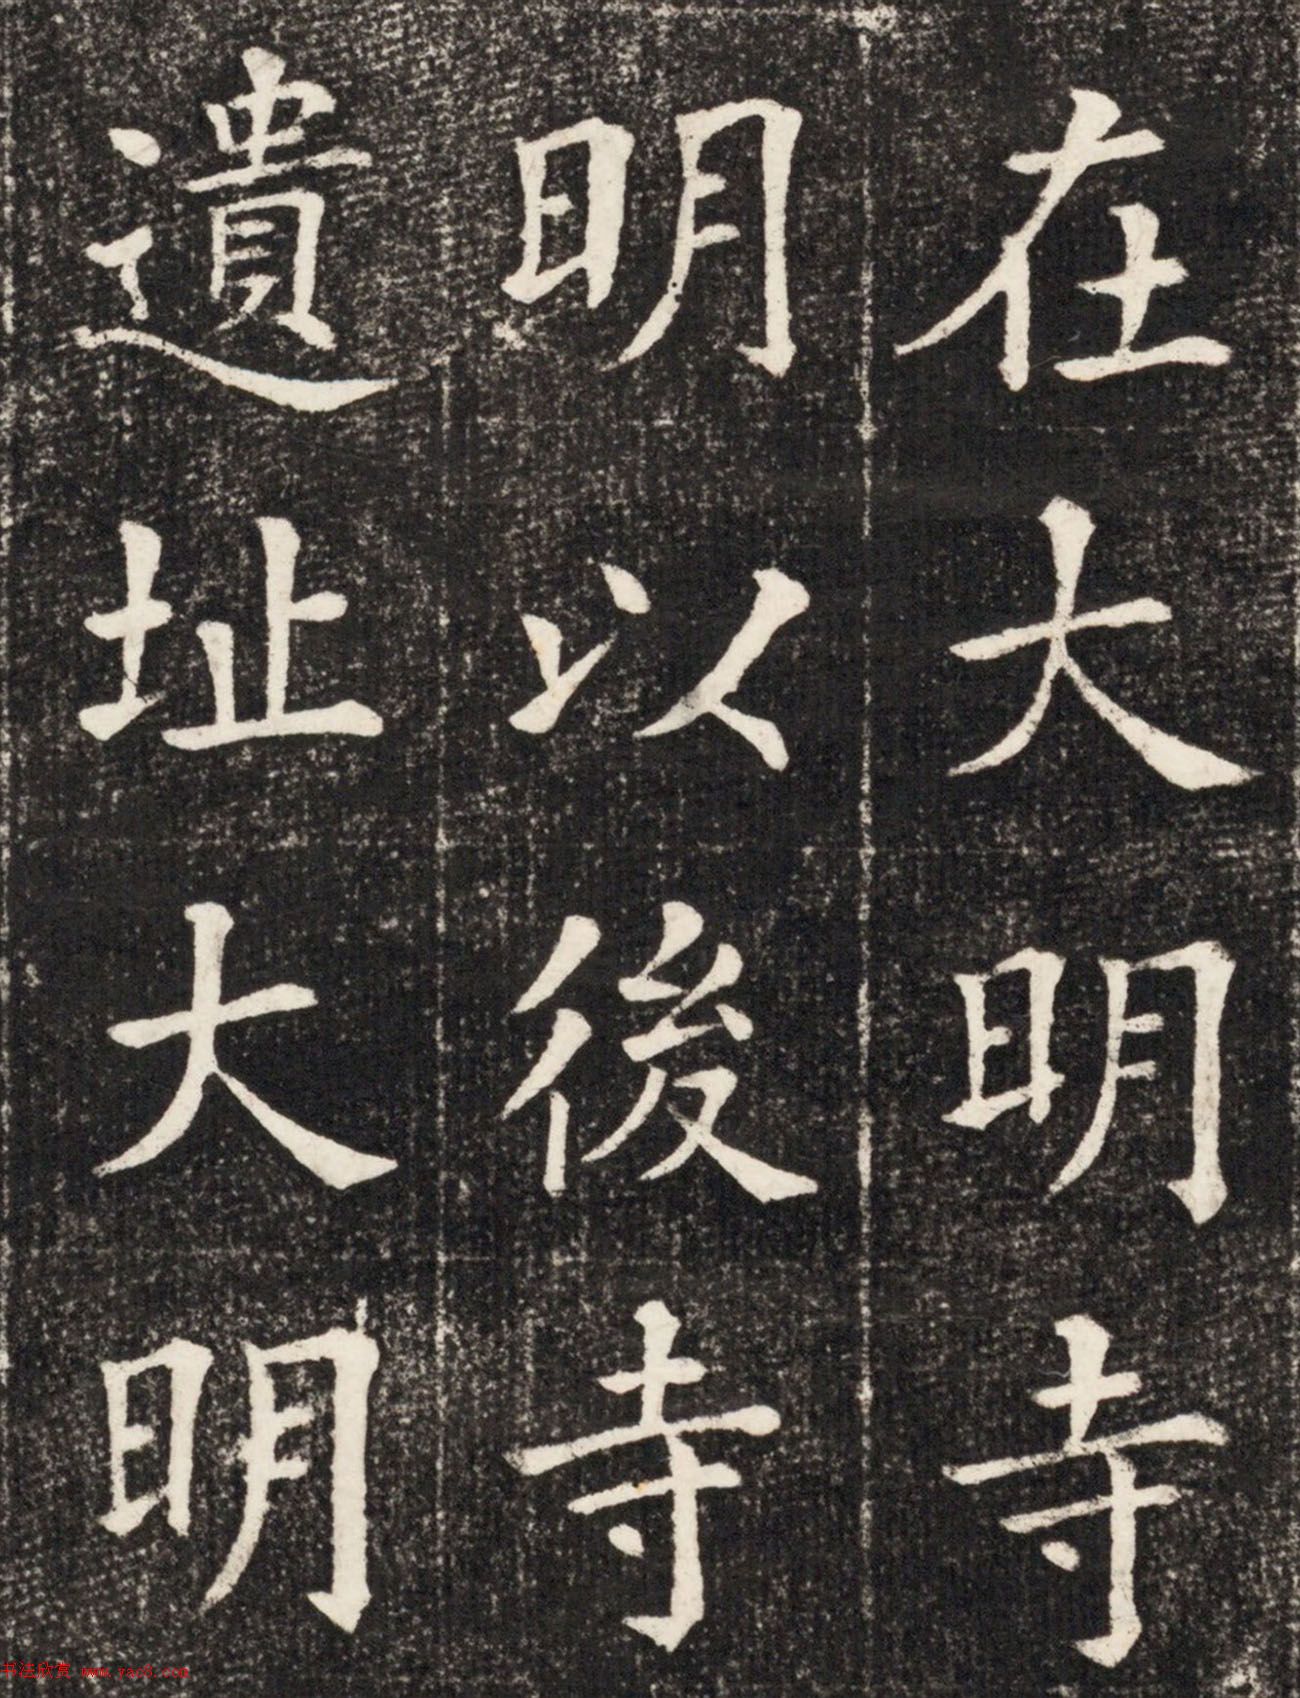 在大明寺
明以後寺
遺址大明
书法欣赏 www.yac8.com